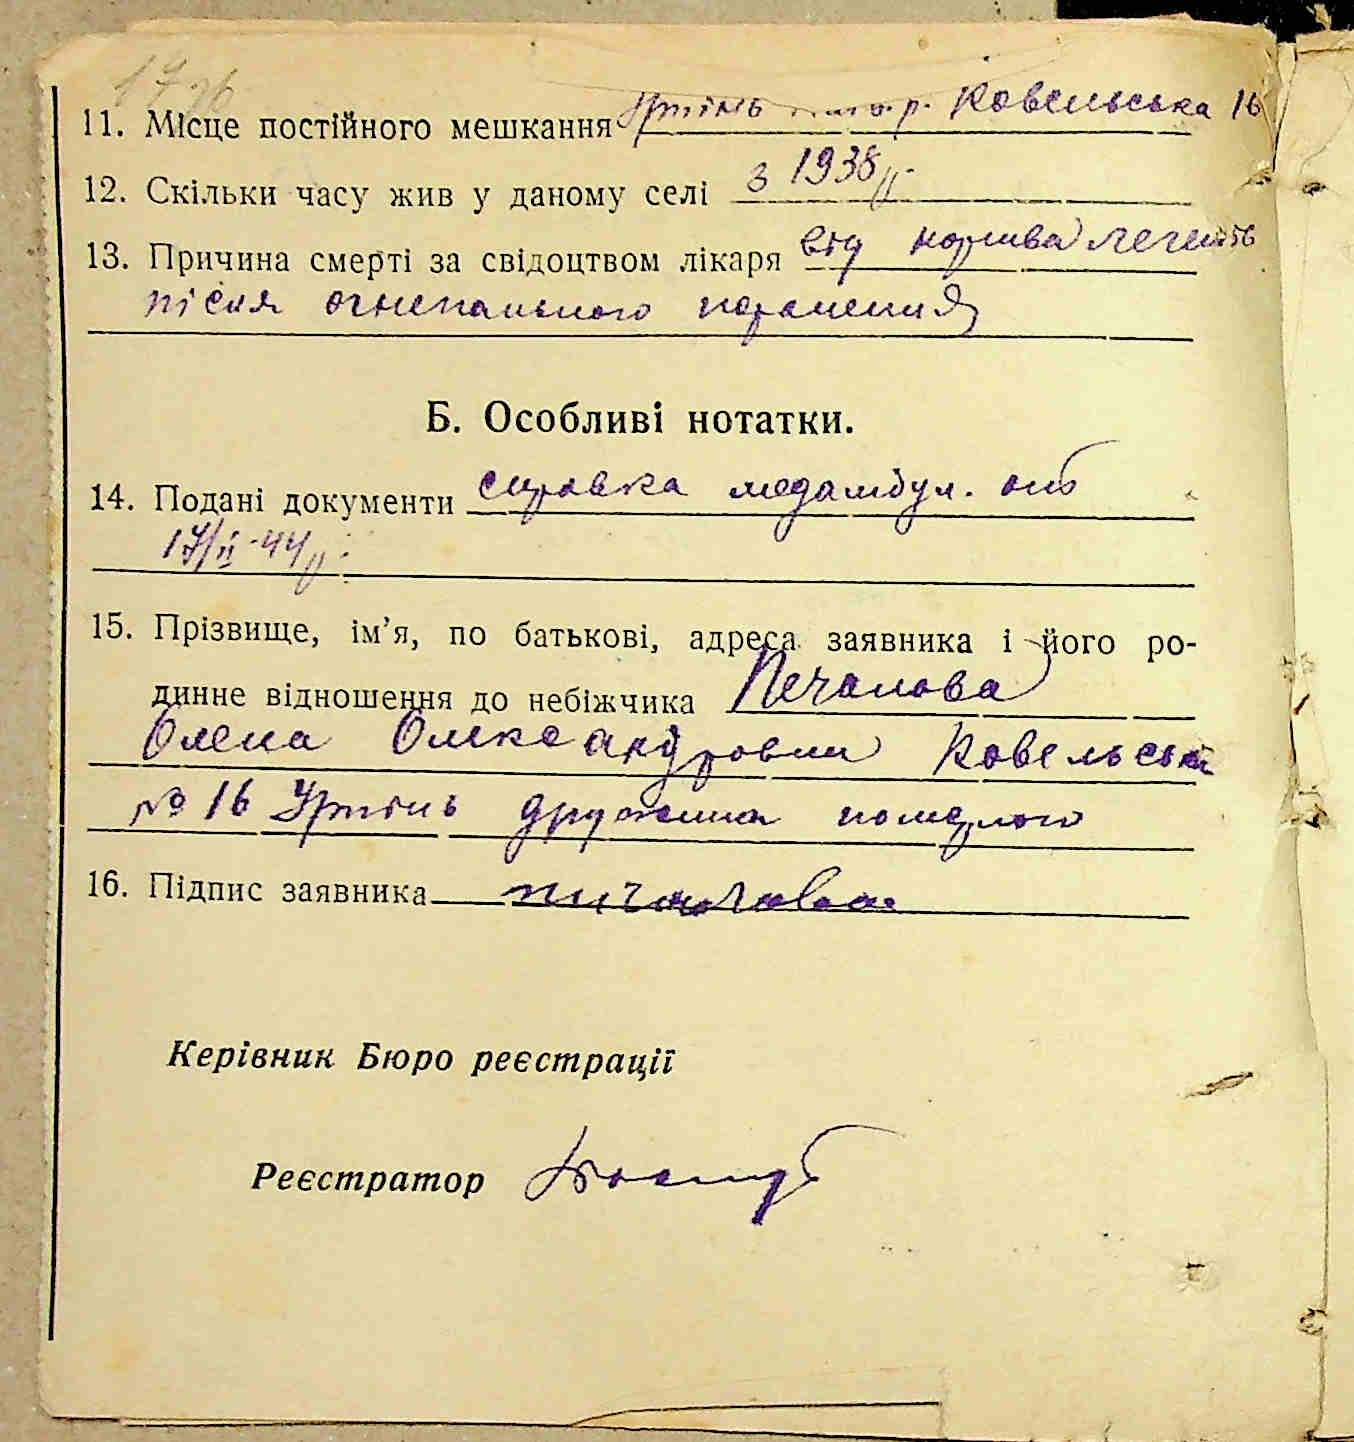 11. Місце постійного мешкання Ірпінь р. Ковельська 16
12. Скільки часу жив у даному селі з 1938 р.
13. Причина смерті за свідоцтвом лікаря від нарива легень
після огнепального поранения
Б. Особливі нотатки.
14. Подані документи справка медамбул. от
17/II-44 р.
15. Прізвище, ім'я, по батькові, адреса заявника і його ро-
динне відношення до небіжчика Печанова
Олена Олександровна Ковельська
№ 16 Ірпінь дружина померлого
16. Підпис заявника
Керівник Бюро реєстрації
Реєстратор